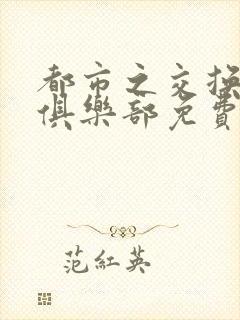 都市之交換
俱樂部免費
范紅英